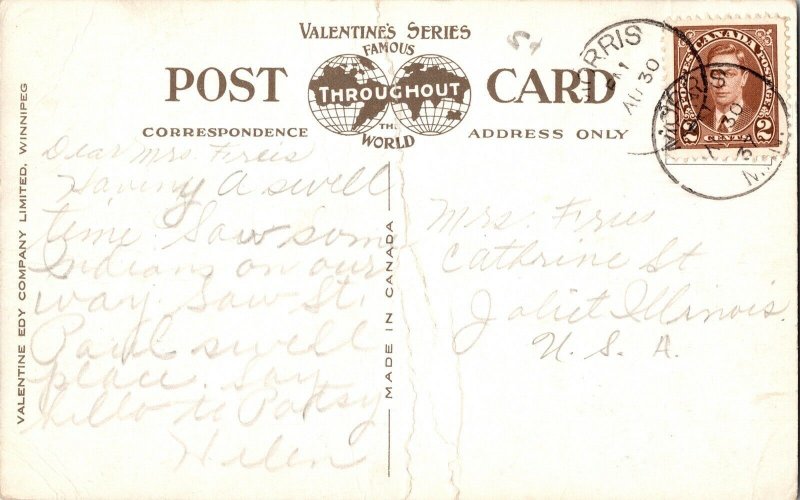 VALENTINE'S SERIES
FAMOUS
POST THROUGHOUT CARD
THE
CORRESPONDENCE WORLD ADDRESS ONLY
VALENTINE EDY COMPANY LIMITED, WINNIPEG
MADE IN CANADA
Dear Mrs. Freis
Having A swell
time. Saw som
Indians on our
way. Saw St.
Paul swell
place. Say
hello to Patsy
Helen
Mrs. Fries
Cathrine St
Joliet Illinois.
U. S. A.
MORRIS
AU 30
MORRIS
30
37
CANADA
POSTES POSTAGE
2 CENTS 2